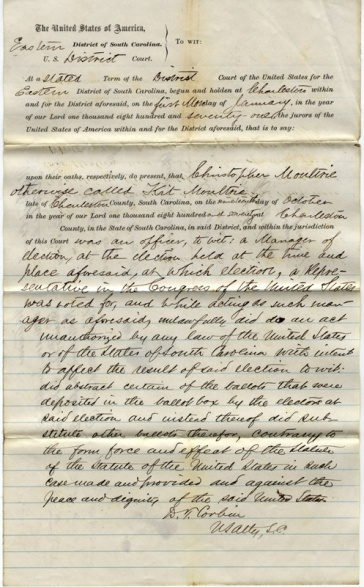 The United States of America,
Eastern District of South Carolina.
To wit:
U. S. District Court.
At a Stated Term of the District Court of the United States for the
Eastern District of South Carolina, begun and holden at Charleston within
and for the District aforesaid, on the first Monday of January, in the year
of our Lord one thousand eight hundred and seventy-one the jurors of the
United States of America within and for the District aforesaid, that is to say:
upon their oaths, respectively, do present, that Christopher Moultrie
otherwise called Kit Moultrie
late of Charleston County, South Carolina, on the nineteenth day of October
in the year of our Lord one thousand eight hundred and seventy at Charleston
County, in the State of South Carolina, in said District, and within the jurisdiction
of this Court was an officer, to wit: a Manager of
election, at the election held at the time and
place aforesaid, at which election, a Repre-
sentative in the Congress of the United States
was voted for, and while acting as such man-
ager as aforesaid, unlawfully did do an act
unauthorized by any law of the United States
or of the State of South Carolina with intent
to affect the result of said election to wit:
did abstract certain of the ballots that were
deposited in the ballot box by the electors at
said election and instead thereof did sub-
stitute other ballots therefor, contrary to
the form force and effect of the Statute
of the Statute of the United States in such
case made and provided and against the
peace and dignity of the said United States.
D. T. Corbin
US Atty, S.C.